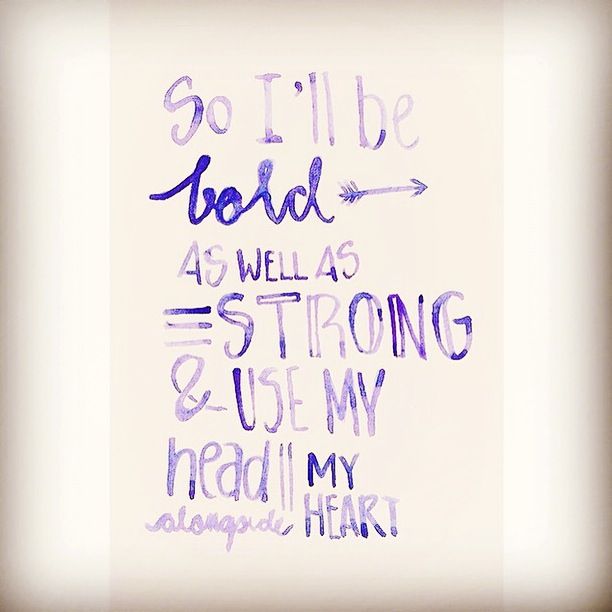 So I'll be
bold
AS WELL AS
STRONG
& USE MY
head
alongside
MY
HEART